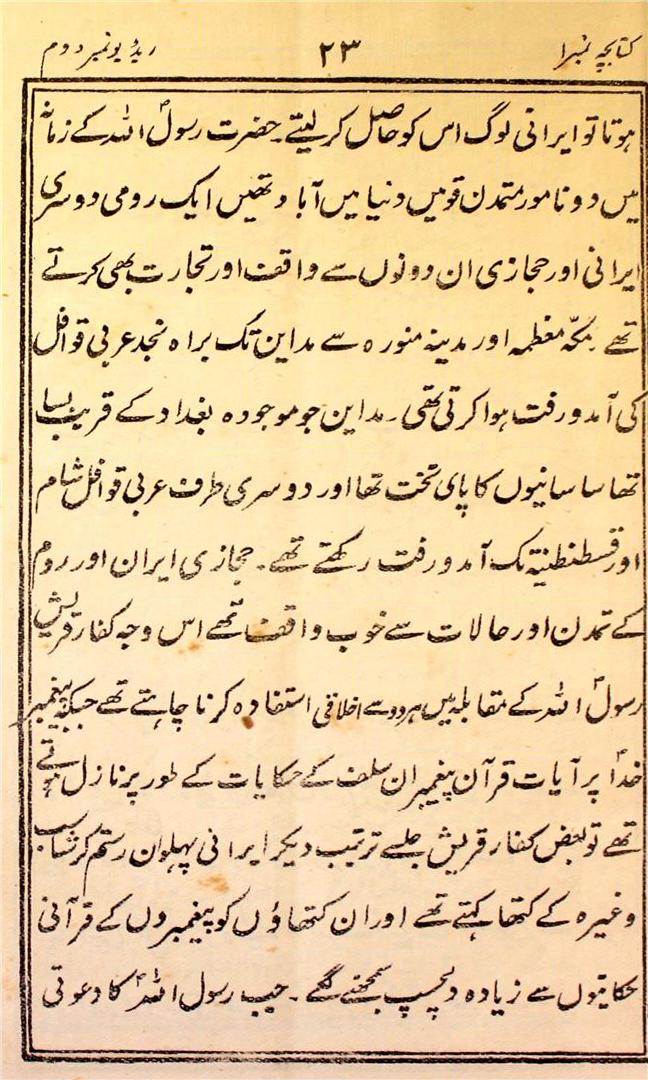 کتابچہ نمبر۱ ۲۳ ریڈیو نمبر دوم
ہوتا تو ایرانی لوگ اس کو حاصل کر لیتے۔ حضرت رسولؐ اللہ کے زمانہ
میں دو نامور متمدن قومیں دنیا میں آباد تھیں ایک رومی دوسری
ایرانی اور حجازی ان دونوں سے واقف اور تجارت بھی کرتے
تھے۔ مکّہ معظمہ اور مدینہ منورہ سے مداین تک براہ نجد عربی قوافل
کی آمد و رفت ہوا کرتی تھی۔ مداین جو موجودہ بغداد کے قریب بسا
تھا ساسانیوں کا پای تخت تھا اور دوسری طرف عربی قوافل شام
اور قسطنطنیۃ تک آمد و رفت رکھتے تھے۔ حجازی ایران اور روم
کے تمدن اور حالات سے خوب واقف تھے اس وجہ کفار قریش
رسولؐ اللہ کے مقابلہ میں ہر دو سے اخلاقی استفادہ کرنا چاہتے تھے جبکہ پیغمبر
خداؐ پر آیات قرآن پیغمبران سلف کے حکایات کے طور پر نازل ہوتے
تھے تو بعض کفار قریش جلسے ترتیب دیکر ایرانی پہلوان رستم گرشاسب
وغیرہ کے کتھا کہتے تھے اور ان کتھاؤں کو پیغمبروں کے قرآنی
حکایتوں سے زیادہ دلچسپ سمجھنے لگے۔ جب رسول اللہؐ کا دعوتی